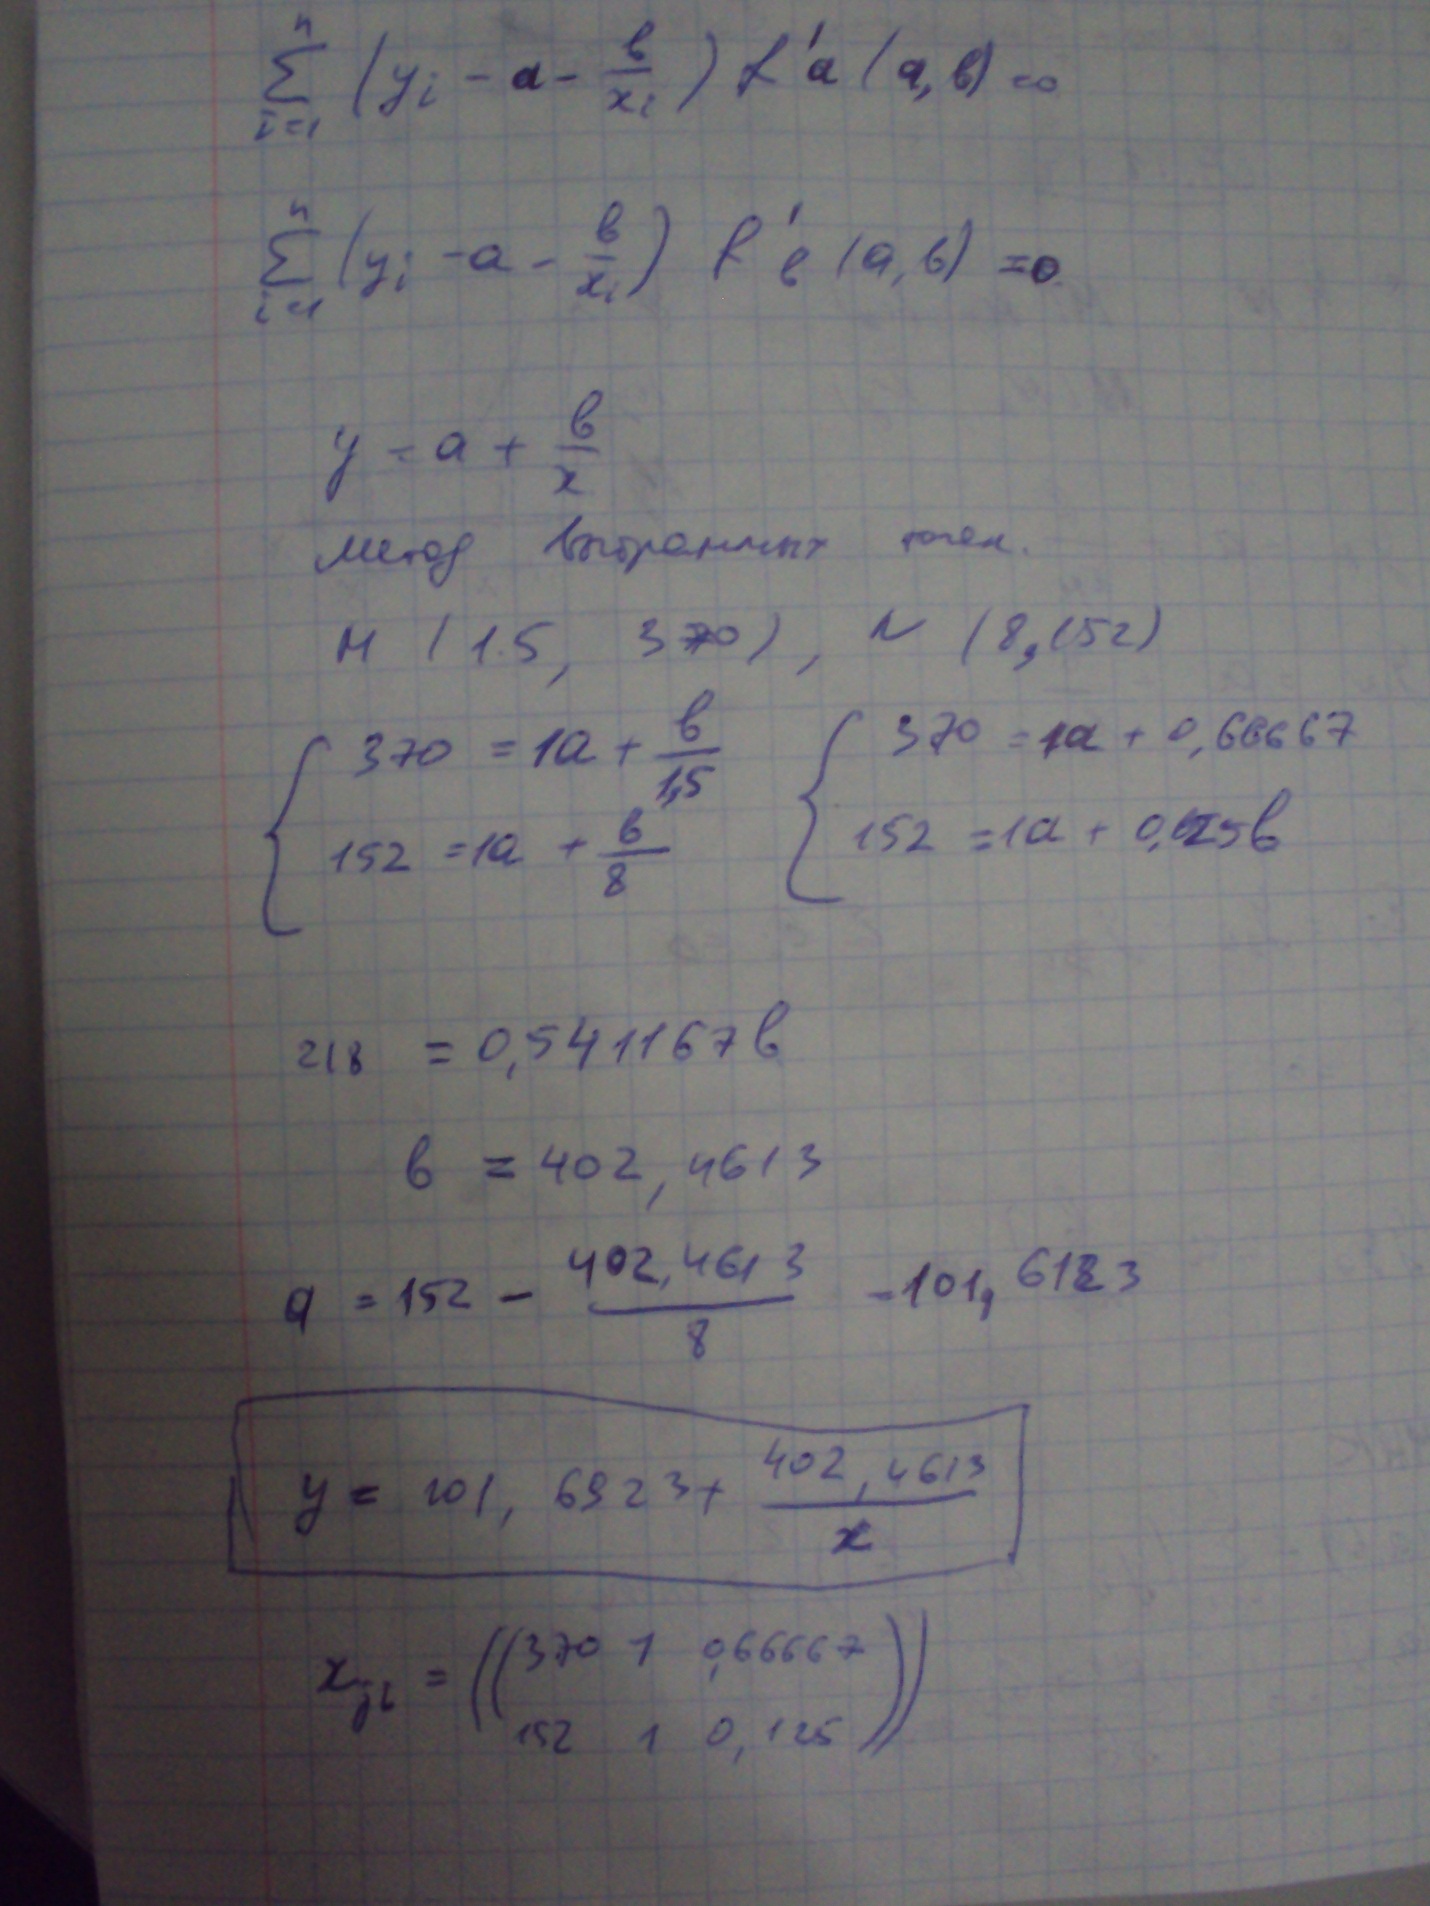 n
∑ (yᵢ - a - в/xᵢ) f'a (a, в) = 0
i=1
n
∑ (yᵢ - a - в/xᵢ) f'в (a, в) = 0
i=1
y = a + в/x
Метод выбранных точек.
M (1.5, 370), N (8, 152)
{ 370 = 1a + в/1,5 { 370 = 1a + 0,66667
152 = 1a + в/8 152 = 1a + 0,125в
218 = 0,541167в
в = 402,4613
a = 152 - 402,4613/8 = 101,6923
y = 101,6923 + 402,4613/x
x = ((370 1 0,66667
152 1 0,125))